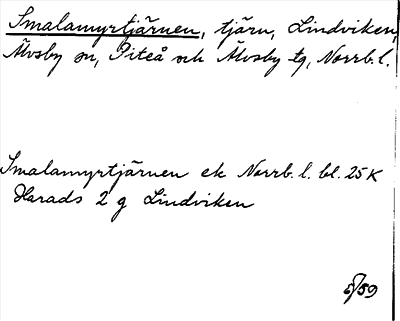 Smalamyrtjärnen, tjärn, Lindviken,
Älvsby sn, Piteå och Älvsby tg, Norrb. l.
Smalamyrtjärnen ek Norrb. l. bl. 25K
Harads 2 g Lindviken
5/59